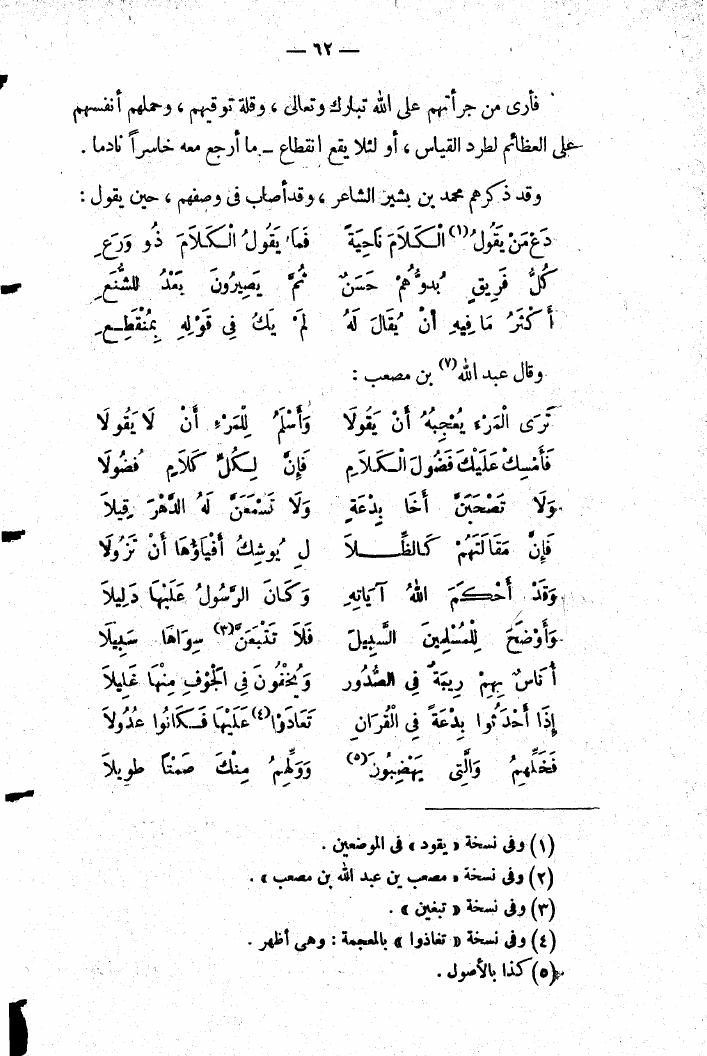 — ٦٢ —
فأرى من جرأتهم على الله تبارك وتعالى ، وقلة توقيهم ، وحملهم أنفسهم
على العظائم لطرد القياس ، أو لئلا يقع انقطاع – ما أرجع معه خاسراً نادما .
وقد ذكرهم محمد بن بشير الشاعر ، وقد أصاب فى وصفهم ، حين يقول :
دَعْ مَنْ يَقُولُ(١) الْكَلاَمَ نَاحِيَةً فَمَا يَقُولُ الْكَلاَمَ ذُو وَرَعِ
كُلُّ فَرِيقٍ بُدُوُّهُمْ حَسَنٌ ثُمَّ يَصِيرُونَ بَعْدُ للشُّنَعِ
أَكْثَرُ مَا فِيهِ أَنْ يُقَالَ لَهُ لَمْ يَكُ فِى قَوْلِهِ بِمُنْقَطِعِ
وقال عبد الله(٧) بن مصعب :
تَرَى الْمَرْءَ يُعْجِبُهُ أَنْ يَقُولاَ وَأَسْلَمُ لِلْمَرْءِ أَنْ لاَ يَقُولاَ
فَأَمْسِكْ عَلَيْكَ فَضُولَ الْكَلاَمِ فَإِنَّ لِكُلِّ كَلاَمٍ فُضُولاَ
وَلاَ تَصْحَبَنَّ أَخَا بِدْعَةٍ وَلاَ تَسْمَعَنَّ لَهُ الدَّهْرَ قِيلاَ
فَإِنَّ مَقَالَتَهُمْ كَالظِّلاَ لِ يُوشِكُ أَفْيَاؤُهَا أَنْ تَزُولاَ
وَقَدْ أَحْكَمَ اللهُ آيَاتِهِ وَكَانَ الرَّسُولُ عَلَيْهَا دَلِيلاَ
وَأَوْضَحَ لِلْمُسْلِمِينَ السَّبِيلَ فَلاَ تَتْبَعَنَّ(٣) سِوَاهَا سَبِيلاَ
أُنَاسٌ بِهِمْ رِيبَةٌ فِى الصُّدُورِ وَيُخْفُونَ فِى الْجَوْفِ مِنْهَا غَلِيلاَ
إِذَا أَحْدَثُوا بِدْعَةً فِى الْقُرَانِ تَعَادَوْا(٤) عَلَيْهَا فَكَانُوا عُدُولاَ
فَخَلِّهِمُ وَالَّتِى يَهْضِبُونَ(٥) وَوَلِّهِمُ مِنْكَ صَمْتًا طَوِيلاَ
(١) وفى نسخة « يقود » فى الموضعين .
(٢) وفى نسخة « مصعب بن عبد الله بن مصعب » .
(٣) وفى نسخة « تبغين » .
(٤) وفى نسخة « تغاذوا » بالمعجمة : وهى أظهر .
(٥) كذا بالأصول .